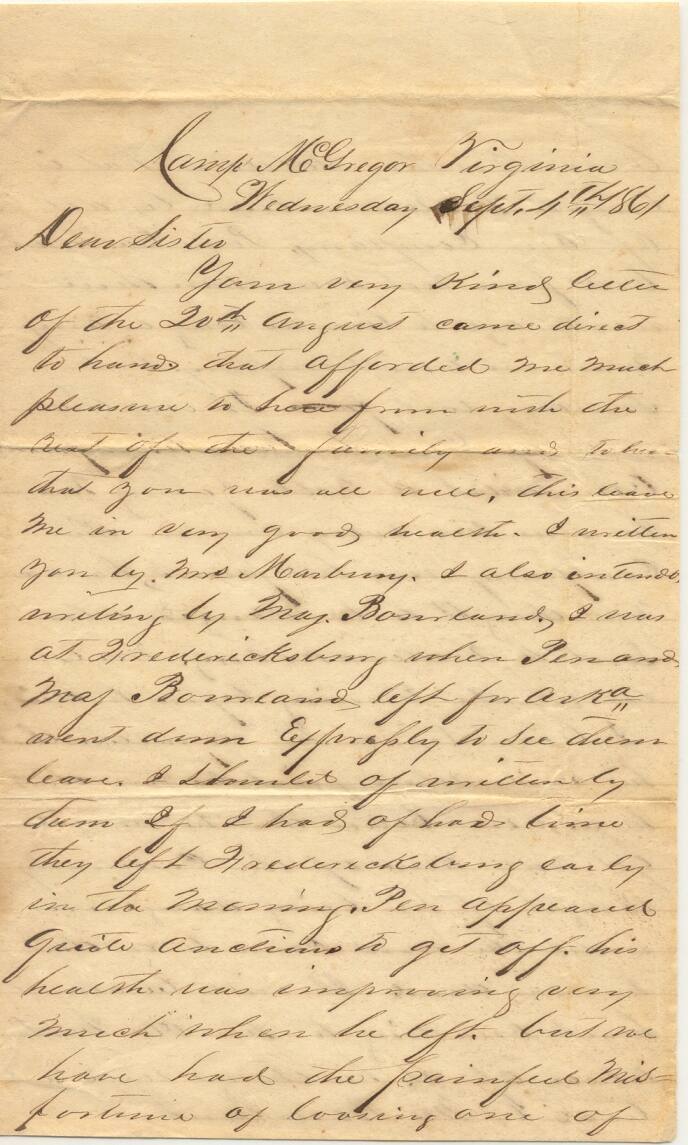 Camp McGregor Virginia
Wednesday Sept. 4th 1861
Dear Sister
Your very Kind letter
of the 20th August came direct
to hand, that afforded me much
pleasure to hear from with the
rest of the family and to hear
that you was all well, this leave
me in very good health. I written
you by Mrs Marbury. I also intend,
writing by Maj. Bourland, I was
at Fredericksburg when Pen and
Maj Bourland left for Arka
went down Expressly to see them
leave. I should of written by
them If I had of had time
they left Fredericksburg early
in the morning. Pen appeared
quite anctious to get off. his
health was improving very
much when he left. but we
have had the painful Mis-
fortune of loosing one of